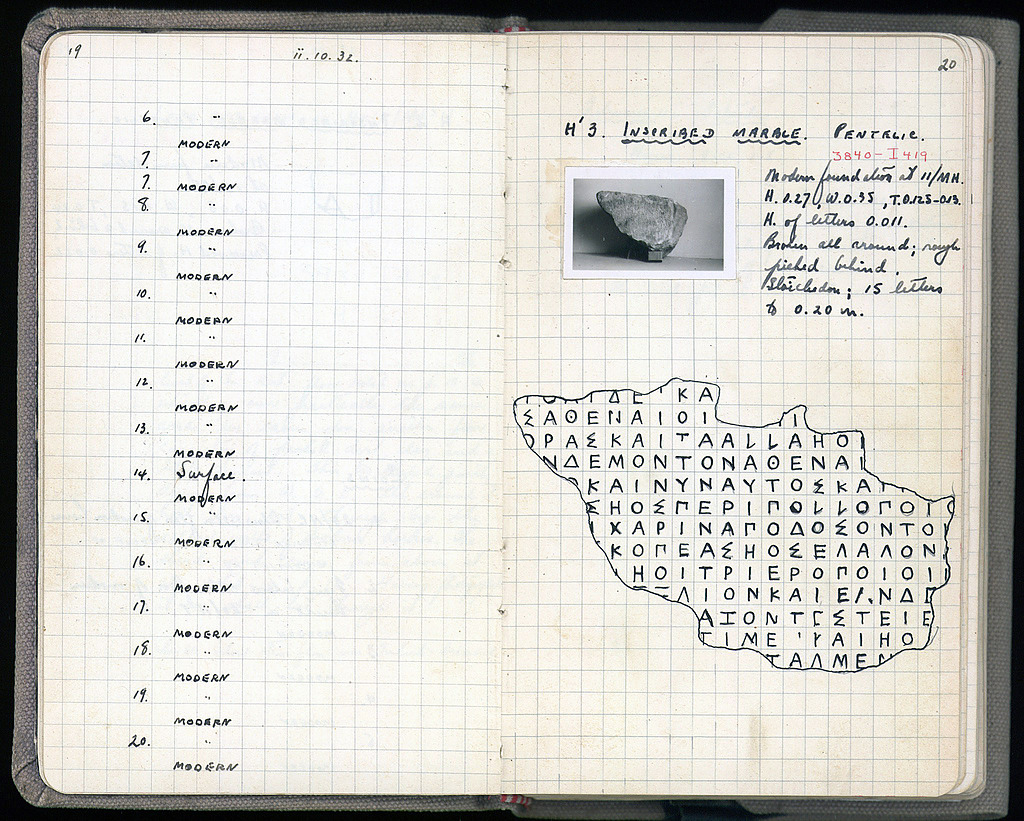 19
ii.10.32.
6. "
MODERN
7. "
7. MODERN
8. "
MODERN
9. "
MODERN
10. "
MODERN
11. "
MODERN
12. "
MODERN
13. "
MODERN
14. Surface.
MODERN
15. "
MODERN
16. "
MODERN
17. "
MODERN
18. "
MODERN
19. "
MODERN
20. "
MODERN
20
H'3. INSCRIBED MARBLE. PENTELIC.
3840-I 419
Modern foundation at 11/MH.
H. 0.27, W. 0.35, T. 0.125-0.13.
H. of letters 0.011.
Broken all around; rough
picked behind.
Stoichedon; 15 letters
to 0.20 m.
ΔΕ ΚΑ
ΣΑΘΕΝΑΙΟΙ
ΟΡΑΣΚΑΙΤΑΑΙΙΑΗΟΙ
ΝΔΕΜΟΝΤΟΝΑΘΕΝΑΙ
ΟΚΑΙΝΥΝΑΥΤΟΣΚΑΙ
ΣΗΟΣΓΕΡΙΓΟΙΙΟΓΟΙΟ
ΙΧΑΡΙΝΑΓΟΔΟΣΟΝΤΟΙ
ΚΟΓΕΑΣΗΟΣΕΛΑΛΟΝ
ΗΟΙΤΡΙΕΡΟΓΟΙΟΙ
ΛΙΟΝΚΑΙΕΛΝΔΓ
ΑΙΟΝΤΓΣΤΕΙΕ
ΤΙΜΕ ΑΙΗΟ
ΤΑΛΜΕΝ